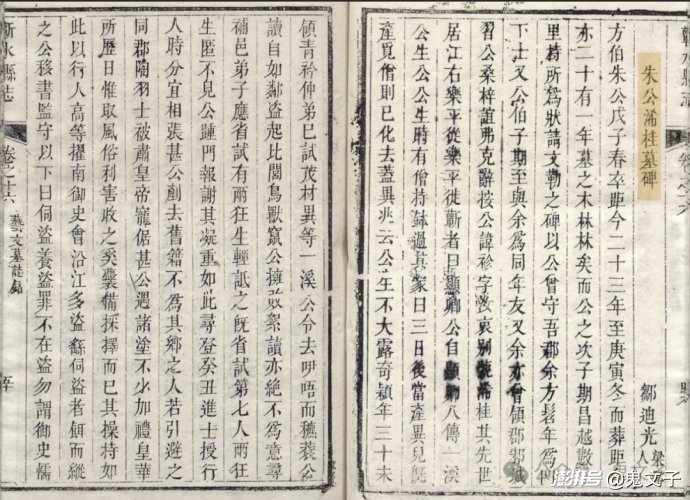 朱公濳桂墓碑
鄒迪光
方伯朱公戊子春卒距今二十三年至庚寅冬而葬距
亦二十有一年墓之木林林矣而公之次子期昌越數
里持所爲狀請文勒之碑以公曾守吾郡余方髫年爲何
下士又公伯子期至與余爲同年友又余亦曾領郡邾城
習公桑梓誼弗克辭按公諱袗字汝哀別號濳桂其先世
居江右樂平從樂平徙蘄者曰顯卿公自顯卿八傳一溪
公生公公生時有僧持鉢過其家曰三日後當產異兒旣
產覓僧則已化去蓋異兆云公生不大露奇穎年三十未
領靑衿仲弟已試茂材異等一溪公令去吚唔而穮蔉公
讀自如鄰盜起比閭鳥獸竄公擁敗絮讀亦絕不爲意尋
補邑弟子應省試有兩狂生輕詆之旣省試第七人兩狂
生匿不見公踵門報謝其凝重如此尋登癸丑進士授行
人時分宜相張甚公剷去舊籍不爲其鄉之人若引避之
同郡陶羽士被肅皇帝寵倨甚公遇諸塗不少加禮皇華
所歷日惟取風俗利害收之奚囊備採擇而已其操持如
此以行人高等擢南御史會沿江多盜繇伺盜者餌而縱
之公移書監守以下曰伺盜養盜罪不在盜勿謂御史懦
蘄水縣志
卷之十六
藝文墓誌銘
澎湃号@鬼文子